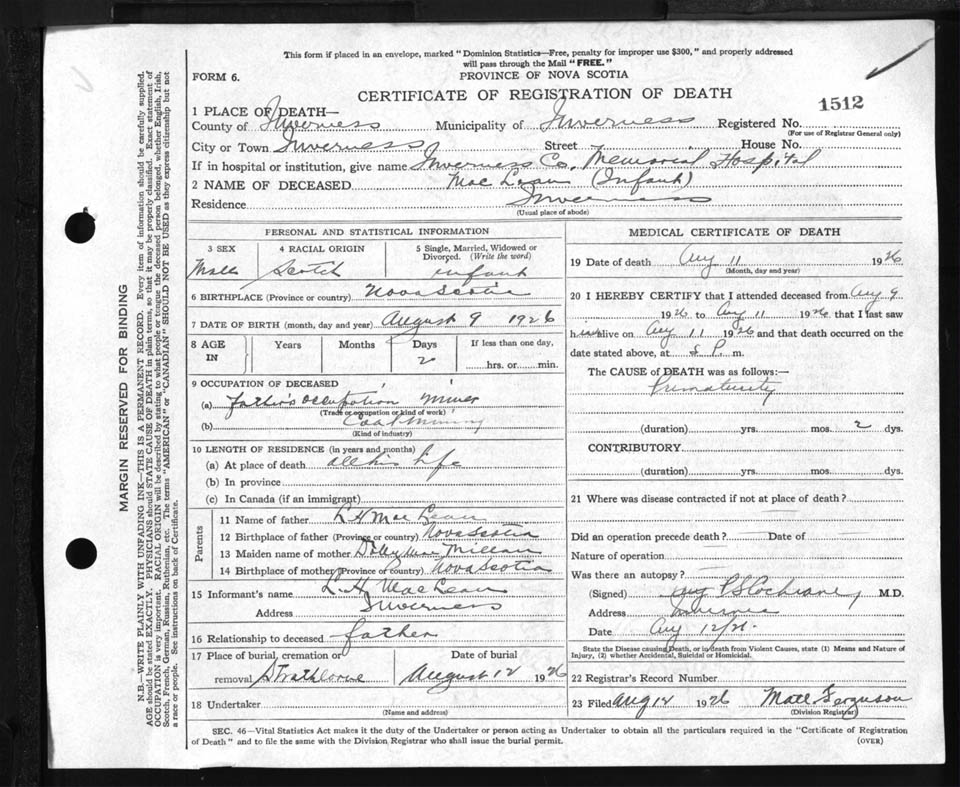 This form if placed in an envelope, marked "Dominion Statistics—Free, penalty for improper use $300," and properly addressed
will pass through the Mail "FREE."
FORM 6.
PROVINCE OF NOVA SCOTIA
CERTIFICATE OF REGISTRATION OF DEATH
1512
1 PLACE OF DEATH—
County of Inverness Municipality of Inverness Registered No.
(For use of Registrar General only)
City or Town Inverness Street House No.
If in hospital or institution, give name Inverness Co. Memorial Hospital
2 NAME OF DECEASED Mac Lean (Infant)
Residence Inverness
(Usual place of abode)
PERSONAL AND STATISTICAL INFORMATION
3 SEX 4 RACIAL ORIGIN 5 Single, Married, Widowed or
Divorced. (Write the word)
Male Scotch infant
6 BIRTHPLACE (Province or country) Nova Scotia
7 DATE OF BIRTH (month, day and year) August 9 1926
8 AGE IN Years Months Days If less than one day,
2 hrs. or min.
9 OCCUPATION OF DECEASED
(a) Father's occupation Miner
(Trade or occupation or kind of work)
(b) Coal Mining
(Kind of industry)
10 LENGTH OF RESIDENCE (in years and months)
(a) At place of death all his life
(b) In province
(c) In Canada (if an immigrant)
Parents
11 Name of father L H Mac Lean
12 Birthplace of father (Province or country) Nova Scotia
13 Maiden name of mother Dolly Mac Millan
14 Birthplace of mother (Province or country) Nova Scotia
15 Informant's name L. H. MacLean
Address Inverness
16 Relationship to deceased father
17 Place of burial, cremation or Date of burial
removal Strathlorne August 12 1926
18 Undertaker
(Name and address)
MEDICAL CERTIFICATE OF DEATH
19 Date of death Aug 11 1926
(Month, day and year)
20 I HEREBY CERTIFY that I attended deceased from Aug 9
1926 to Aug 11 1926 that I last saw
him alive on Aug 11 1926 and that death occurred on the
date stated above, at P. m.
The CAUSE of DEATH was as follows:—
Prematurity
(duration) yrs. mos. 2 dys.
CONTRIBUTORY
(duration) yrs. mos. dys.
21 Where was disease contracted if not at place of death?
Did an operation precede death? Date of
Nature of operation
Was there an autopsy?
(Signed) Cochrane, M.D.
Address Inverness
Date Aug 12/26.
State the Disease causing Death, or in death from Violent Causes, state (1) Means and Nature of
Injury, (2) whether Accidental, Suicidal or Homicidal.
22 Registrar's Record Number
23 Filed Aug 12 1926 Matt Ferguson
(Division Registrar)
SEC. 46—Vital Statistics Act makes it the duty of the Undertaker or person acting as Undertaker to obtain all the particulars required in the "Certificate of Registration
of Death" and to file the same with the Division Registrar who shall issue the burial permit.
(OVER)
MARGIN RESERVED FOR BINDING
N.B.—WRITE PLAINLY WITH UNFADING INK—THIS IS A PERMANENT RECORD. Every item of information should be carefully supplied.
AGE should be stated EXACTLY. PHYSICIANS should STATE CAUSE OF DEATH in plain terms, so that it may be properly classified. Exact statement of
OCCUPATION is very important. RACIAL ORIGIN will be described by stating to what people or tongue the deceased person belonged, whether English, Irish,
Scotch, French, German, Russian, Ruthenian, etc. The terms "AMERICAN" or "CANADIAN" SHOULD NOT BE USED as they express citizenship but not
a race or people. See instructions on back of Certificate.